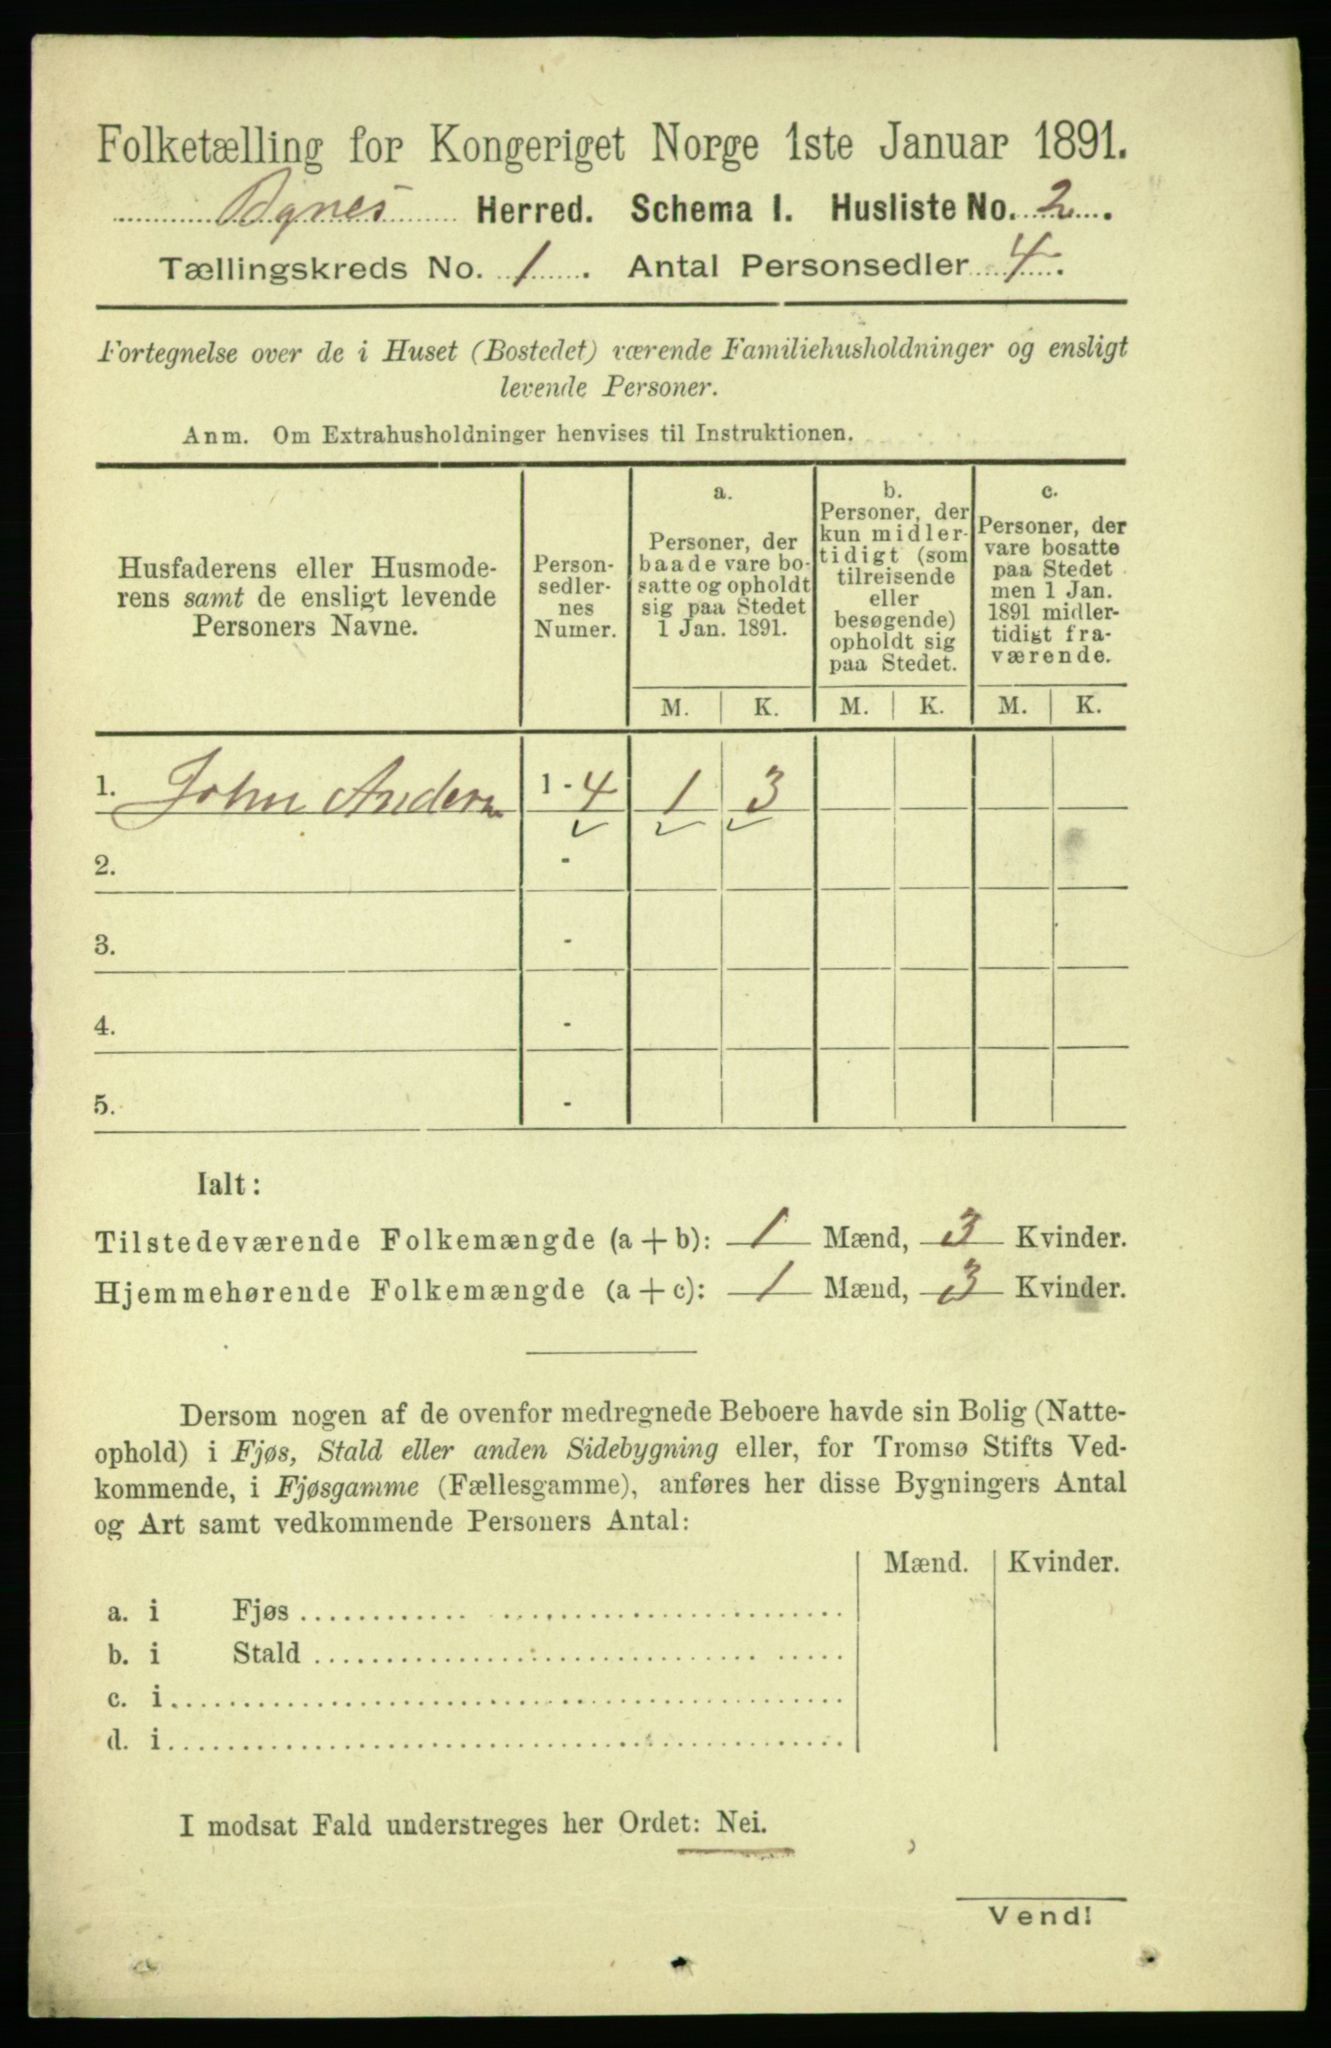 Folketælling for Kongeriget Norge 1ste Januar 1891.
Bynes Herred. Schema I. Husliste No. 2.
Tællingskreds No. 1. Antal Personsedler 4.
Fortegnelse over de i Huset (Bostedet) værende Familiehusholdninger og ensligt
levende Personer.
Anm. Om Extrahusholdninger henvises til Instruktionen.
Husfaderens eller Husmode-
rens samt de ensligt levende
Personers Navne.
Person-
sedler-
nes
Numer.
a.
Personer, der
baade vare bo-
satte og opholdt
sig paa Stedet
1 Jan. 1891.
b.
Personer, der
kun midler-
tidigt (som
tilreisende
eller
besøgende)
opholdt sig
paa Stedet.
c.
Personer, der
vare bosatte
paa Stedet
men 1 Jan.
1891 midler-
tidigt fra-
værende.
M. K. M. K. M. K.
1. John Andersn 1 - 4 1 3
2. -
3. -
4. -
5. -
Ialt:
Tilstedeværende Folkemængde (a + b): 1 Mænd, 3 Kvinder.
Hjemmehørende Folkemængde (a + c): 1 Mænd, 3 Kvinder.
Dersom nogen af de ovenfor medregnede Beboere havde sin Bolig (Natte-
ophold) i Fjøs, Stald eller anden Sidebygning eller, for Tromsø Stifts Ved-
kommende, i Fjøsgamme (Fællesgamme), anføres her disse Bygningers Antal
og Art samt vedkommende Personers Antal:
Mænd. Kvinder.
a. i Fjøs
b. i Stald
c. i
d. i
I modsat Fald understreges her Ordet: Nei.
Vend!